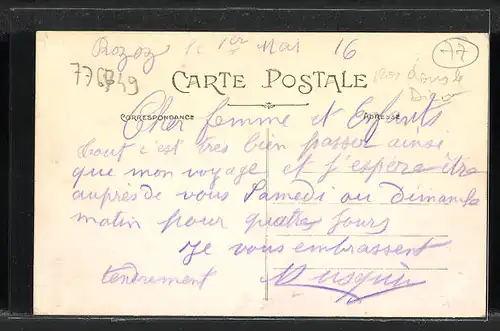 Rozoy le 1er Mai 16
77
776749
CARTE POSTALE
CORRESPONDANCE
ADRESSE
Cher femme et Enfants
tout c'est tres bien passer ainsi
que mon voyage et j'espere être
auprès de vous Samedi ou dimanche
matin pour quatres jours
Je vous embrassent
tendrement